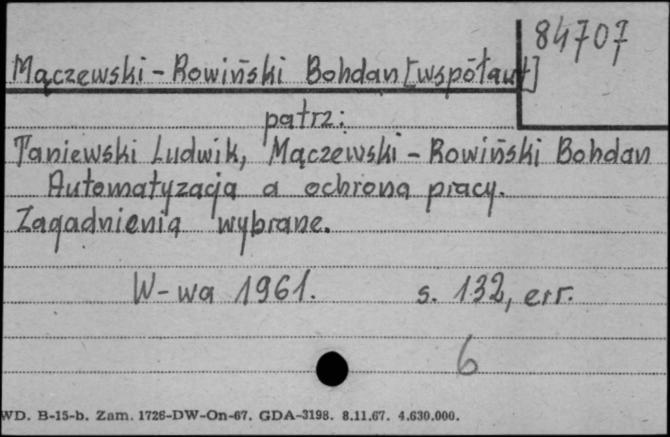 84707
Mączewski - Rowiński Bohdan [współaut]
patrz:
Taniewski Ludwik, Mączewski - Rowiński Bohdan
Automatyzacja a ochrona pracy.
Zagadnienia wybrane.
W-wa 1961. s. 132, err.
6
WD. B-15-b. Zam. 1726-DW-On-67. GDA-3198. 8.11.67. 4.630.000.